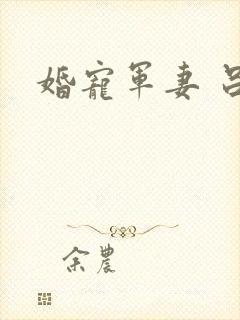 婚寵軍妻
余農